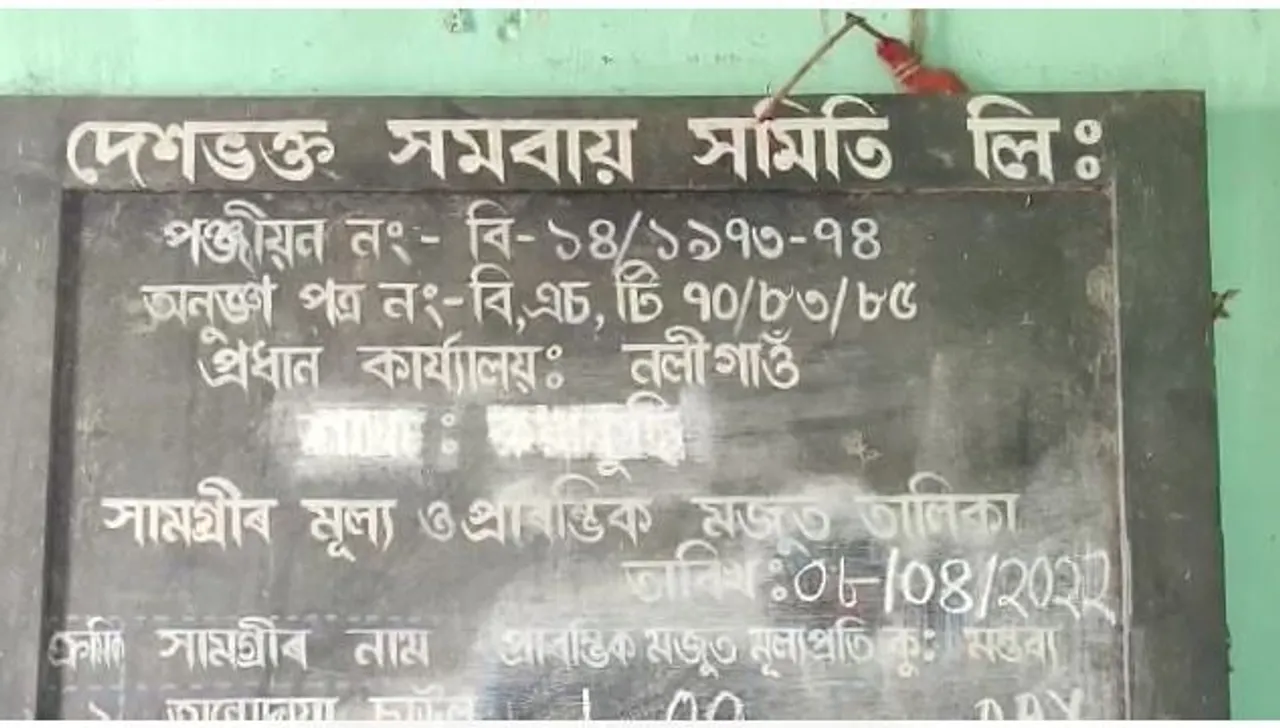 দেশভক্ত সমবায় সমিতি লি ঃ
পঞ্জীয়ন নং- বি-১৪/১৯৭৩-৭৪
অনুজ্ঞা পত্ৰ নং-বি,এচ,টি ৭০/৮৩/৮৫
প্ৰধান কাৰ্য্যালয়ঃ নলীগাওঁ
সামগ্ৰীৰ মূল্য ও প্ৰাৰম্ভিক মজুত তালিকা
তাৰিখ :০৮/০৪/২০২২
ক্ৰমিক সামগ্ৰীৰ নাম প্ৰাৰম্ভিক মজুত মূল্যপ্ৰতি কু: মন্তব্য